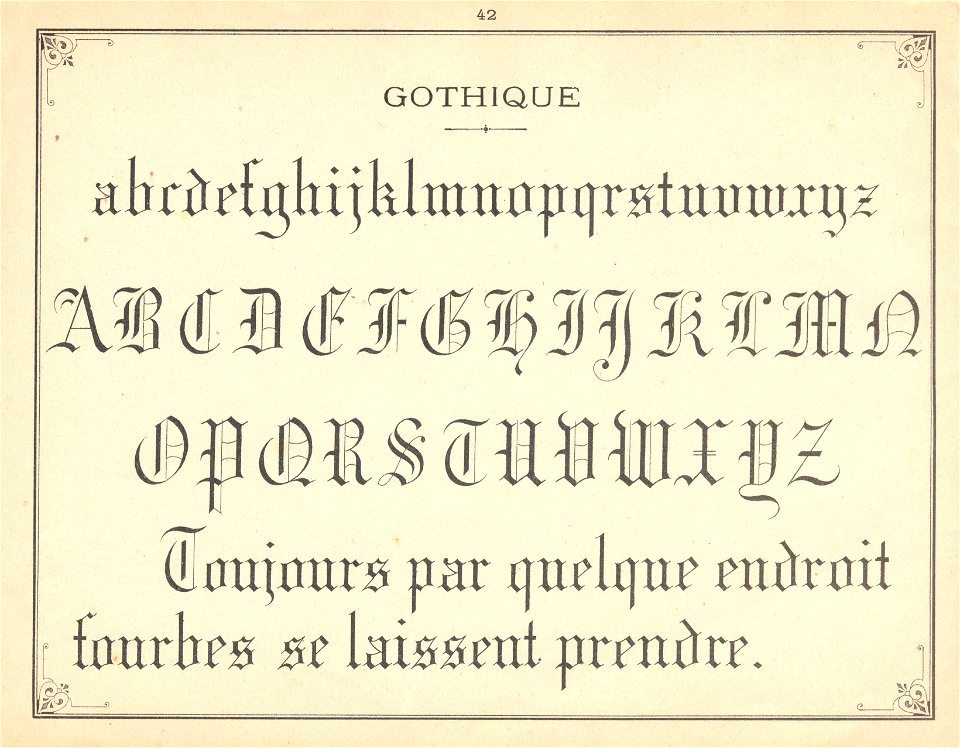 42
GOTHIQUE
abcdefghijklmnopqrstuvwxyz
ABCDEFGHIJKLMN
OPQRSTUVWXYZ
Toujours par quelque endroit
fourbes se laissent prendre.